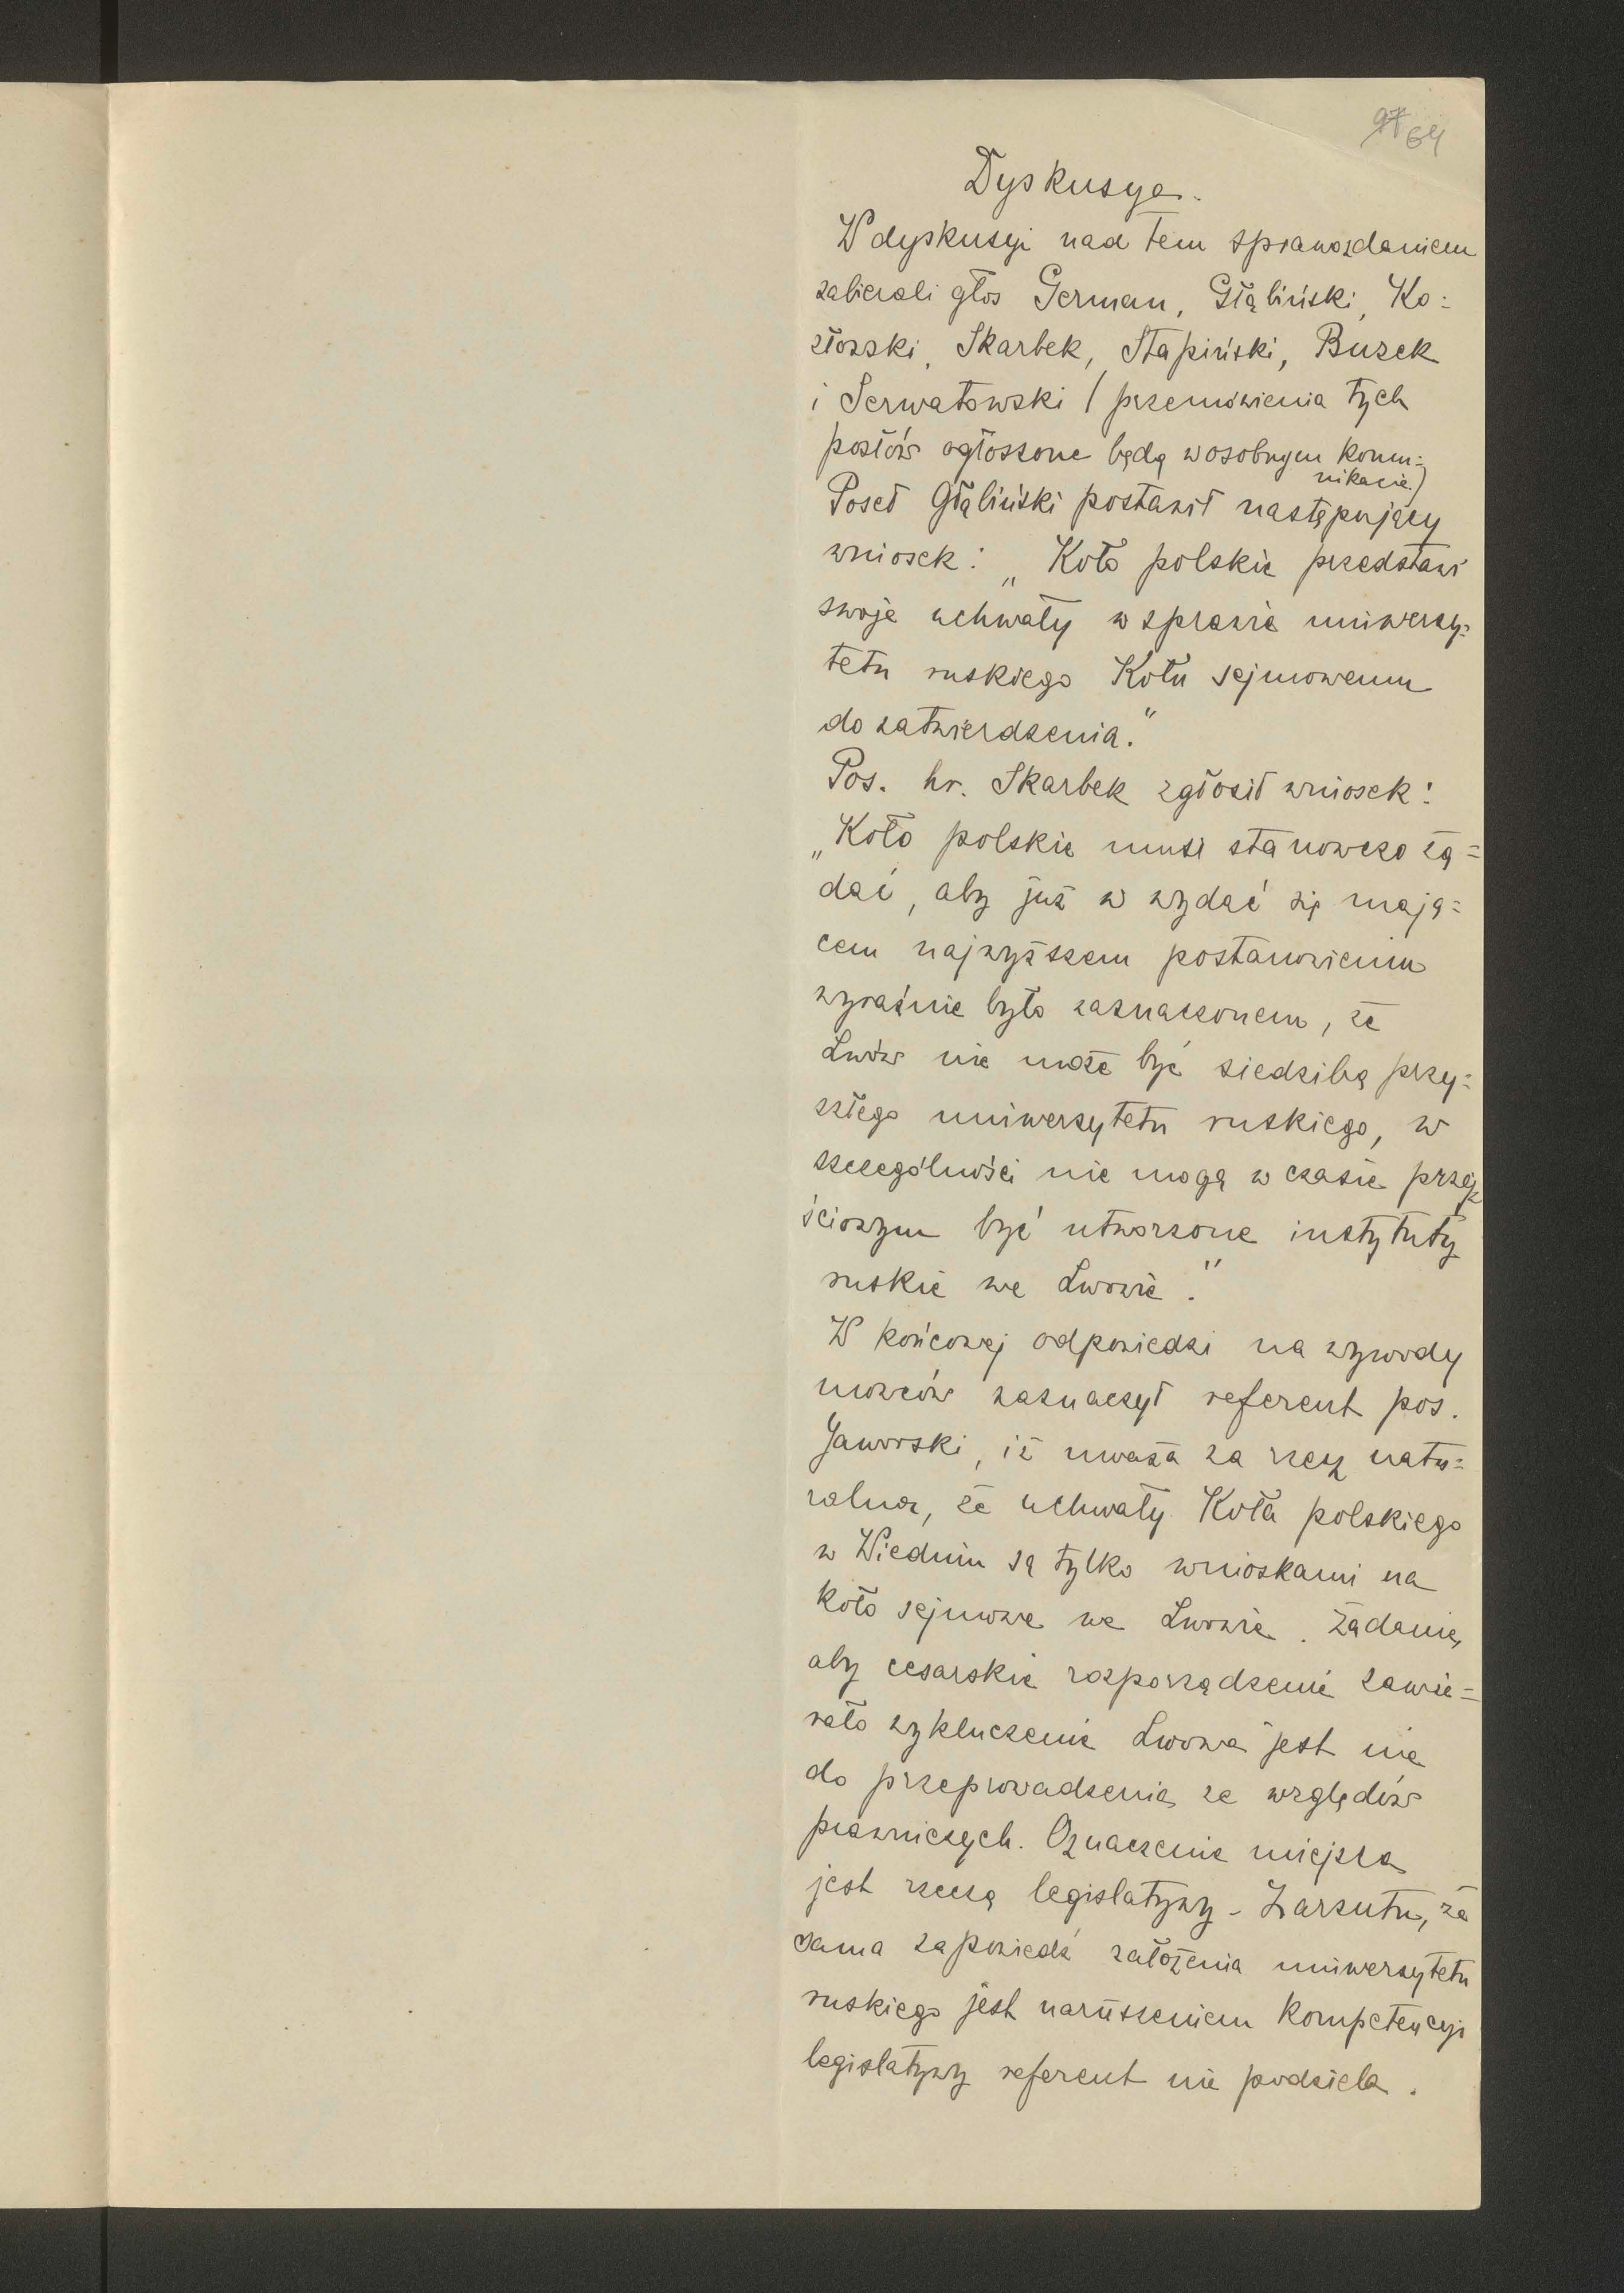 97 64
Dyskusya.
W dyskusyi nad tem sprawozdaniem
zabierali głos German, Głąbiński, Ko=
złowski, Skarbek, Stapiński, Buzek
i Serwatowski / przemówienia tych
posłów ogłoszone będą w osobnym komu=
nikacie.)
Poseł Głąbiński postawił następujący
wniosek: „Koło polskie przedstawi
swoje uchwały w sprawie uniwersy=
tetu ruskiego Kołu sejmowemu
do zatwierdzenia."
Pos. hr. Skarbek zgłosił wniosek:
„Koło polskie musi stanowczo żą=
dać, aby już w wydać się mają=
cem najwyższem postanowieniu
wyraźnie było zaznaczonem, że
Lwów nie może być siedzibą przy=
szłego uniwersytetu ruskiego, w
szczególności nie mogą w czasie przej
ściowym być utworzone instytuty
ruskie we Lwowie."
W końcowej odpowiedzi na wywody
mowców zaznaczył referent pos.
Jaworski, iż uważa za rzecz natu=
ralną, że uchwały Koła polskiego
w Wiedniu są tylko wnioskami na
koło sejmowe we Lwowie. Żądanie,
aby cesarskie rozporządzenie zawie=
rało wykluczenie Lwowa jest nie
do przeprowadzenia ze względów
prawniczych. Oznaczenie miejsca
jest rzeczą legislatywy - Zarzutu, że
sama zapowiedź założenia uniwersytetu
ruskiego jest naruszeniem kompetencyi
legislatywy referent nie podziela.